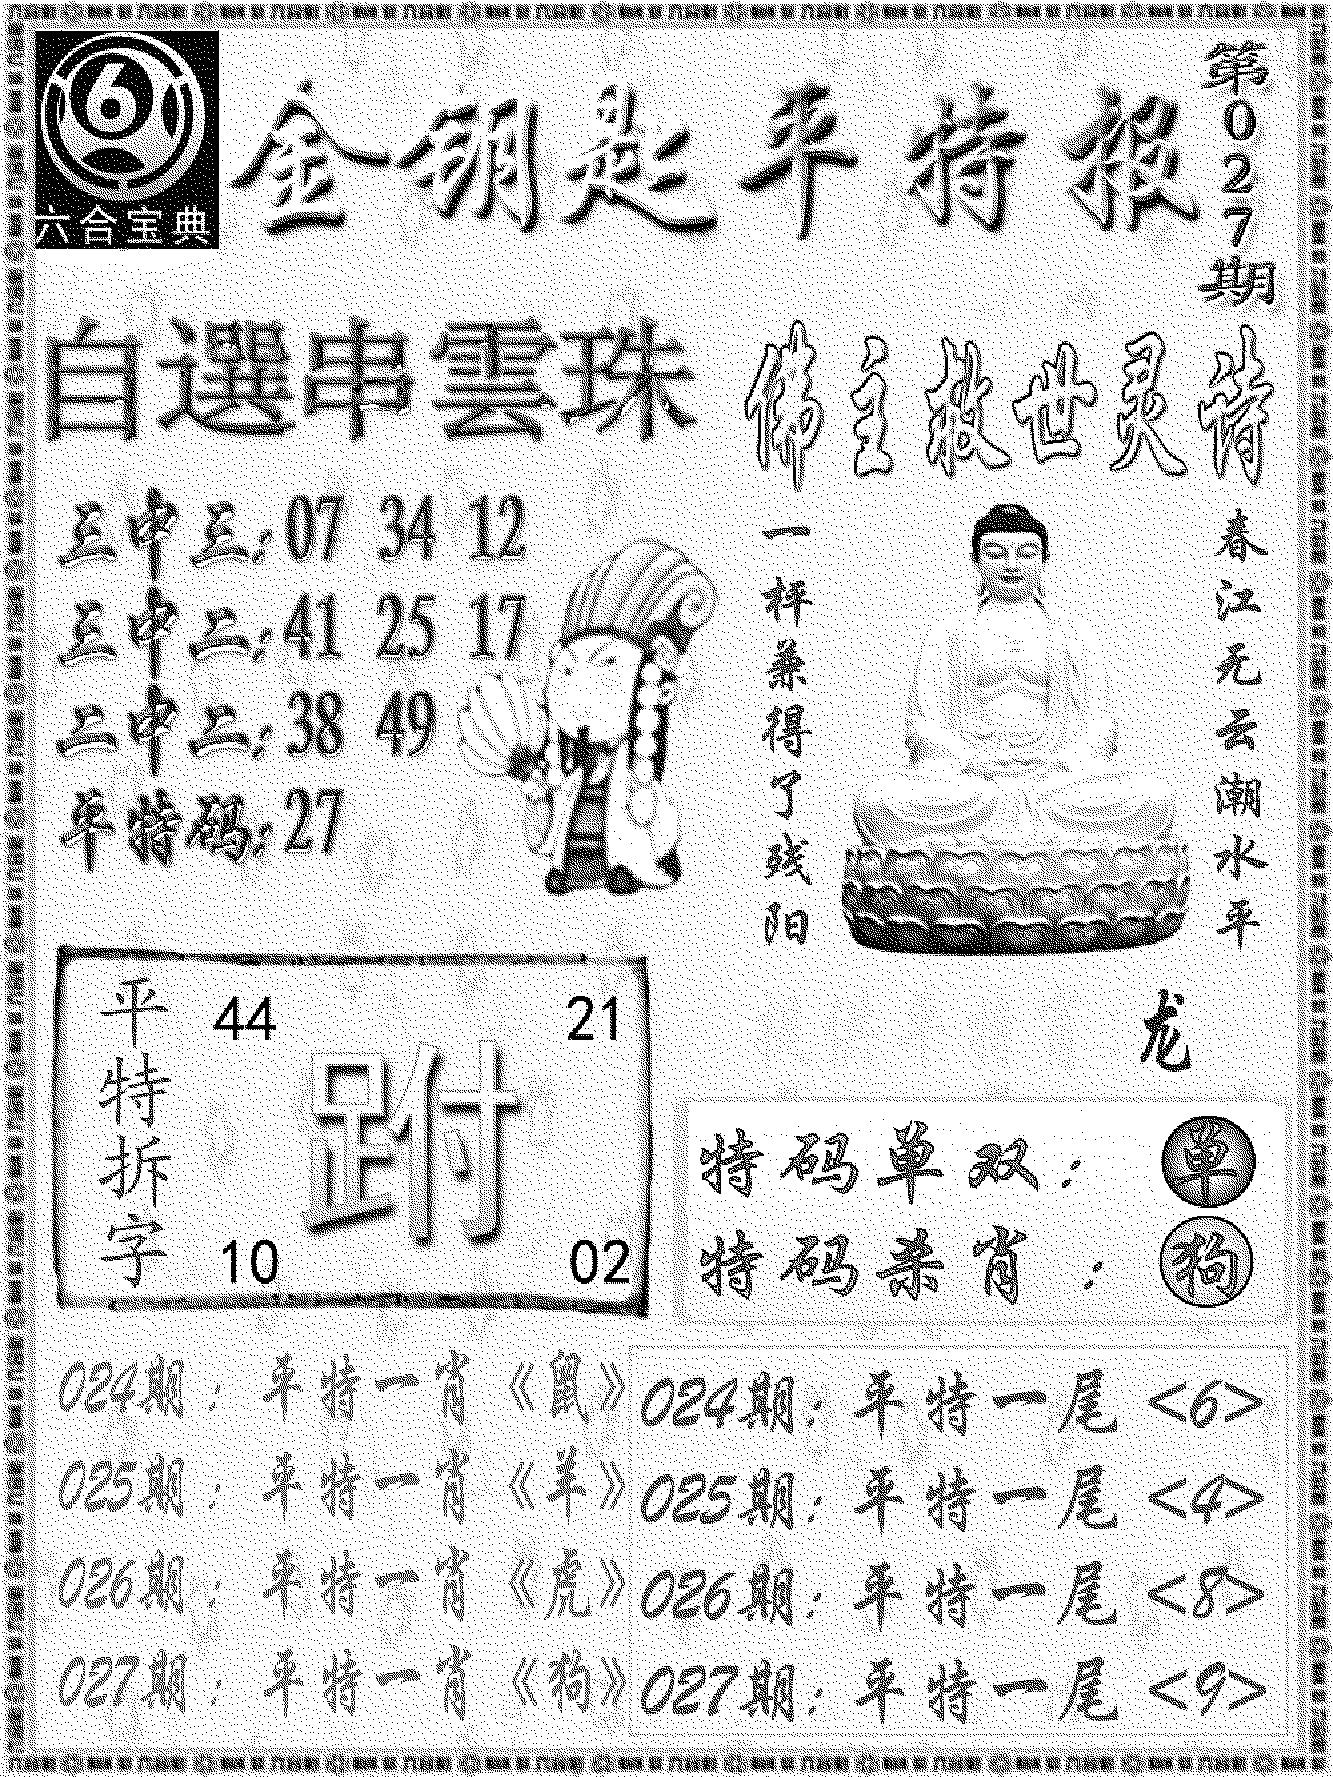 六合宝典
金钥匙平特报
第027期
自選串雲珠
三中三:07 34 12
三中二:41 25 17
二中二:38 49
平特码:27
佛主救世灵诗
春江无云潮水平
一枰兼得了残阳
龙
平特拆字
44 21
跗
10 02
特码单双: 单
特码杀肖: 狗
024期: 平特一肖《鼠》
025期: 平特一肖《羊》
026期: 平特一肖《虎》
027期: 平特一肖《狗》
024期: 平特一尾<6>
025期: 平特一尾<4>
026期: 平特一尾<8>
027期: 平特一尾<9>